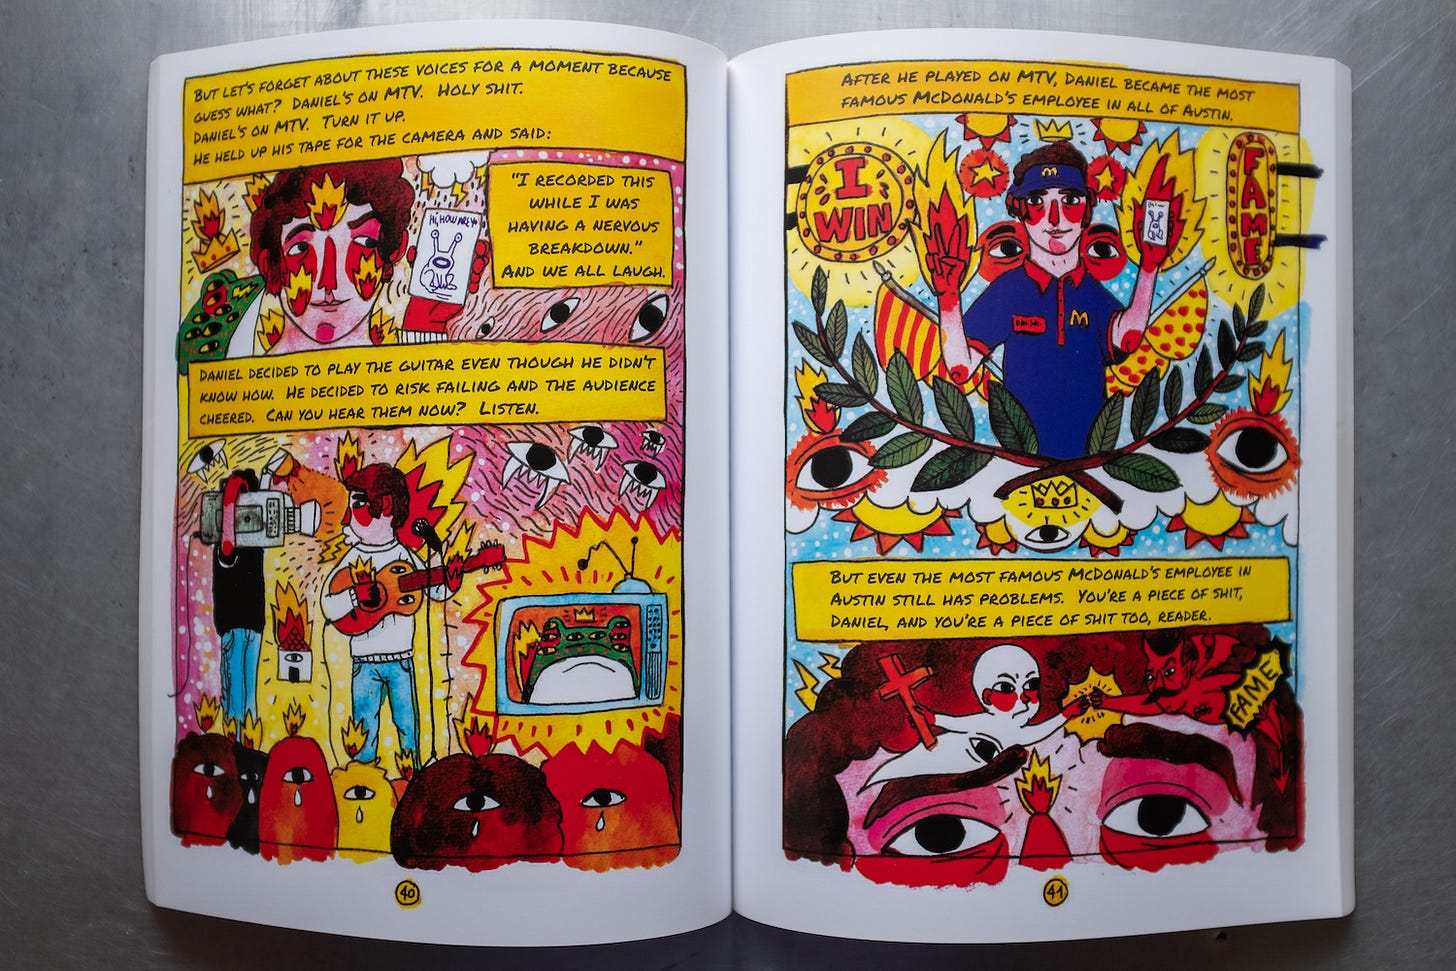 BUT LET'S FORGET ABOUT THESE VOICES FOR A MOMENT BECAUSE
GUESS WHAT? DANIEL'S ON MTV. HOLY SHIT.
DANIEL'S ON MTV. TURN IT UP.
HE HELD UP HIS TAPE FOR THE CAMERA AND SAID:
"I RECORDED THIS
WHILE I WAS
HAVING A NERVOUS
BREAKDOWN."
AND WE ALL LAUGH.
HI, HOW ARE
DANIEL DECIDED TO PLAY THE GUITAR EVEN THOUGH HE DIDN'T
KNOW HOW. HE DECIDED TO RISK FAILING AND THE AUDIENCE
CHEERED. CAN YOU HEAR THEM NOW? LISTEN.
40
AFTER HE PLAYED ON MTV, DANIEL BECAME THE MOST
FAMOUS MCDONALD'S EMPLOYEE IN ALL OF AUSTIN.
I
WIN
FAME
M
M
BUT EVEN THE MOST FAMOUS MCDONALD'S EMPLOYEE IN
AUSTIN STILL HAS PROBLEMS. YOU'RE A PIECE OF SHIT,
DANIEL, AND YOU'RE A PIECE OF SHIT TOO, READER.
666
FAME
41